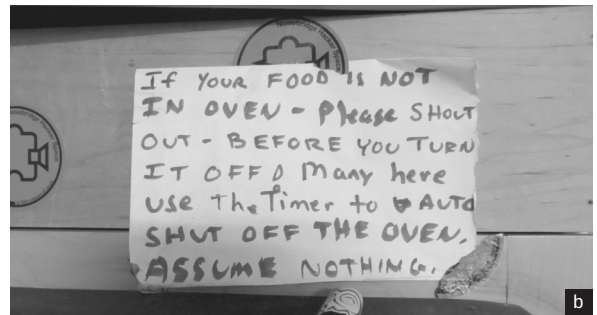 Noisebridge Hacker Space
IF YOUR FOOD IS NOT
IN OVEN - Please SHOUT
OUT - BEFORE YOU TURN
IT OFF! Many here
use The Timer to AUTO
SHUT OFF THE OVEN.
ASSUME NOTHING.
b